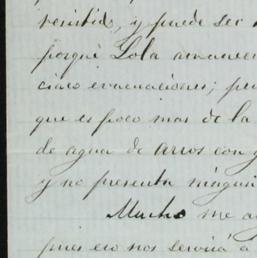 resistido, y puede ser
porqué Lola amanec
cinco evacuaciones; pe
que es poco mas de la
de agua de arros con
y no presenta ningu
Mucho me a
pues eso nos servirá a